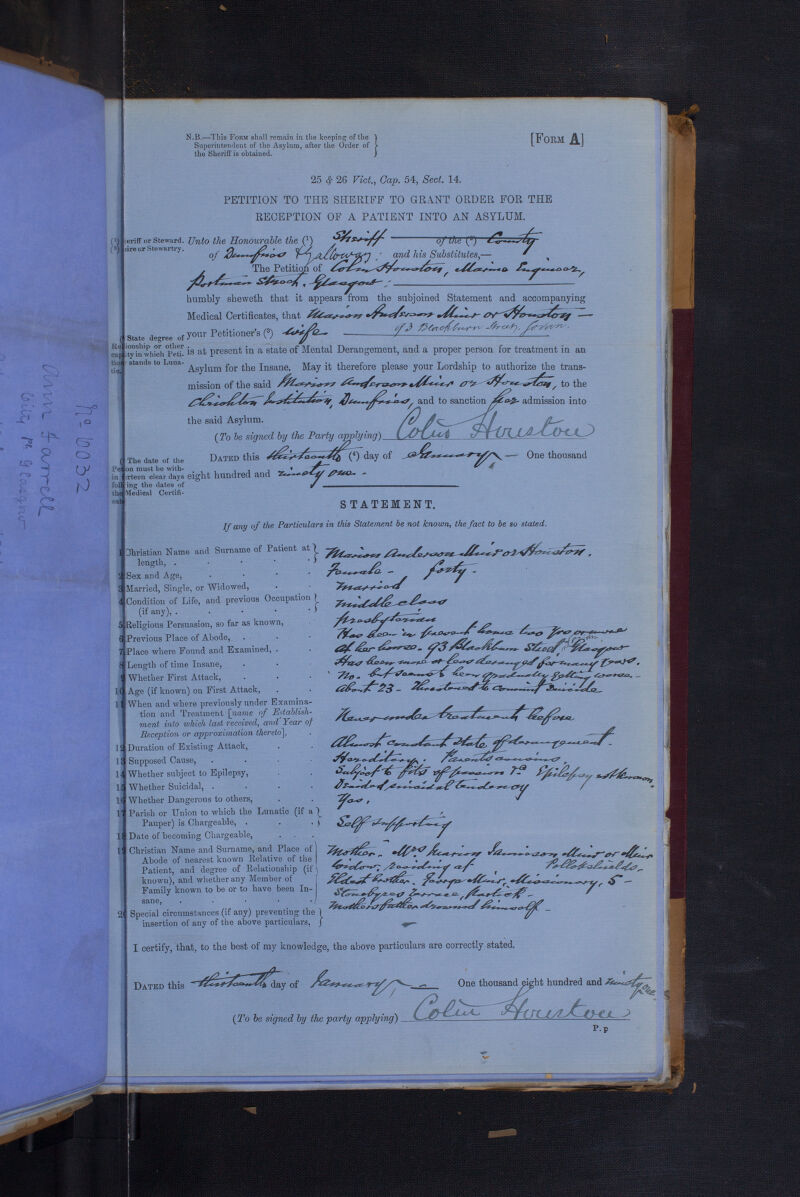 N.B.—This Form shall remain in the keeping of the
Superintendent of the Asylum, after the Order of
the Sheriff is obtained.
[Form A]
25 & 26 Vict., Cap. 54, Sect. 14.
PETITION TO THE SHERIFF TO GRANT ORDER FOR THE
RECEPTION OF A PATIENT INTO AN ASYLUM.
eriff or Steward.
ire or Stewartry.
Unto the Honourable the (1) Sheriff of the (2) County
of Dumfries & Galloway: and his Substitutes,—
The Petition of Colin Houston, Marine Engineer,
Portman Street, Glasgow:
humbly sheweth that it appears from the subjoined Statement and accompanying
Medical Certificates, that Marion Anderson Muir or Houston—
State degree of
Relationship or other
capacity in which Peti-
tioner stands to Luna-
tic.
your Petitioner's (3) wife of 3 Blackburn Street, Govan.
is at present in a state of Mental Derangement, and a proper person for treatment in an
Asylum for the Insane. May it therefore please your Lordship to authorize the trans-
mission of the said Marion Anderson Muir or Houston, to the
Chrichton Institution, Dumfries, and to sanction her admission into
the said Asylum.
(To be signed by the Party applying) Colin Houston
The date of the
Petition must be with-
in fourteen clear days
following the dates of
the Medical Certifi-
cates
Dated this thirteenth (4) day of January — One thousand
eight hundred and ninety one.-
No 6032
Ann Farrell
City Ph Glasgow
STATEMENT.
If any of the Particulars in this Statement be not known, the fact to be so stated.
1 Christian Name and Surname of Patient at length, . Marion Anderson Muir or Houston.
2 Sex and Age, Female - forty -
3 Married, Single, or Widowed, Married
4 Condition of Life, and previous Occupation (if any), . middle class
5 Religious Persuasion, so far as known, presbyterian
6 Previous Place of Abode, . Has been in present home two yrs or more
7 Place where Found and Examined, . At her house. 93 Blackburn Street Glasgow
8 Length of time Insane, Has been more or less deranged for many years.
9 Whether First Attack, No. but seems to been gradually getting worse.-
10 Age (if known) on First Attack, About 23 - Threatened to commit Suicide
11 When and where previously under Examina-
tion and Treatment [name of Establish-
ment into which last received, and Year of
Reception or approximation thereto], Never under treatment before
12 Duration of Existing Attack, Almost constant State of derangement.
13 Supposed Cause, . Hereditary. Parents cousins
14 Whether subject to Epilepsy, Subject to fits of passion Epilepsy not known.
15 Whether Suicidal, . Decided suicidal tendency
16 Whether Dangerous to others, Yes.
17 Parish or Union to which the Lunatic (if a
Pauper) is Chargeable, . Self supporting
18 Date of becoming Chargeable,
19 Christian Name and Surname, and Place of
Abode of nearest known Relative of the
Patient, and degree of Relationship (if
known), and whether any Member of
Family known to be or to have been In-
sane,
Mother. Mrs Marion Jamieson Muir or Muir
Widow, residing at Pollokshields.
Eldest brother. George Muir, Missionary, 5-
Stonebyres Terrace, Partick -
Mothers father drowned himself -
20 Special circumstances (if any) preventing the
insertion of any of the above particulars,
I certify, that, to the best of my knowledge, the above particulars are correctly stated.
Dated this thirteenth day of January, — One thousand eight hundred and ninety one
(To be signed by the party applying) Colin Houston
P. p